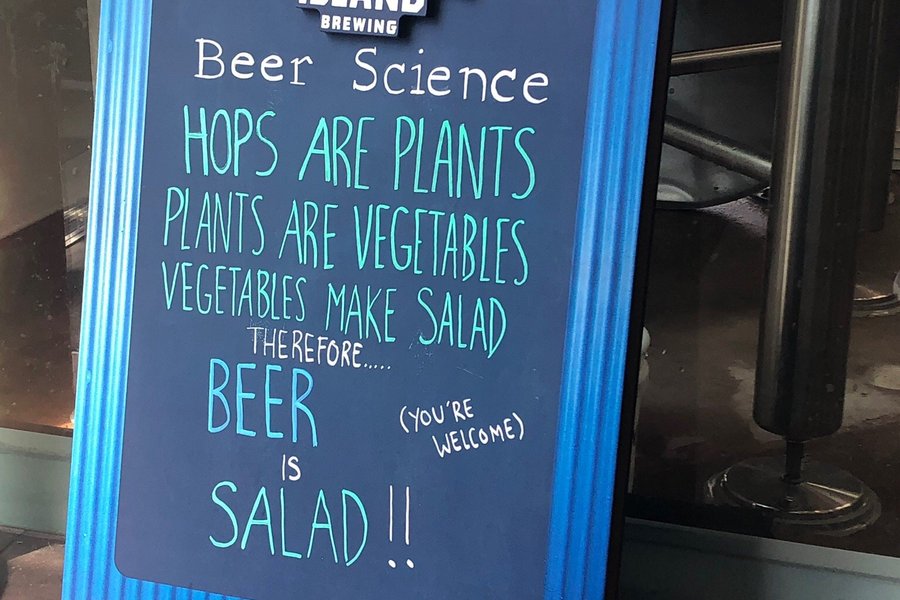 ISLAND
BREWING
Beer Science
HOPS ARE PLANTS
PLANTS ARE VEGETABLES
VEGETABLES MAKE SALAD
THEREFORE.....
BEER
(YOU'RE
WELCOME)
IS
SALAD!!